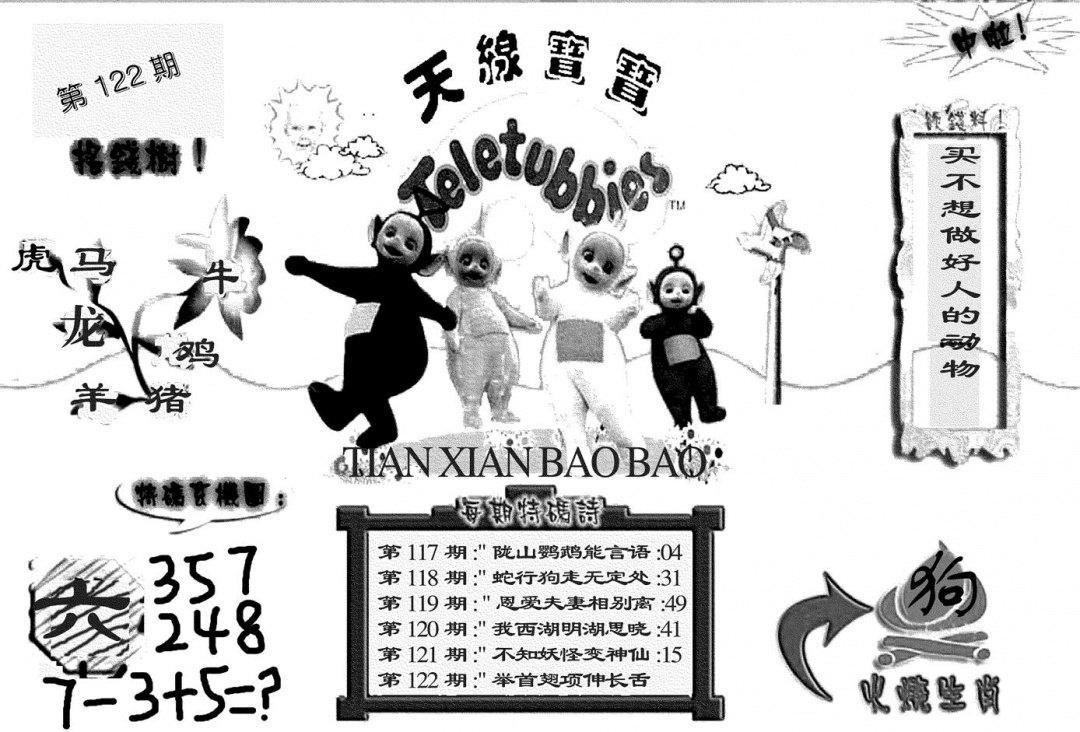 第 122 期
天線寶寶
中啦！
Teletubbies
TM
搖錢樹！
虎 马 牛
龙
鸡
羊 猪
買錢料！
买不想做好人的动物
TIAN XIAN BAO BAO
特碼玄機圖：
六
357
248
7-3+5=?
每期特碼詩
第 117 期 :" 陇山鹦鹉能言语 :04
第 118 期 :" 蛇行狗走无定处 :31
第 119 期 : " 恩爱夫妻相别离 :49
第 120 期 :" 我西湖明湖思晓 :41
第 121 期 :" 不知妖怪变神仙 :15
第 122 期 :" 举首翘项伸长舌
狗
火燒生肖